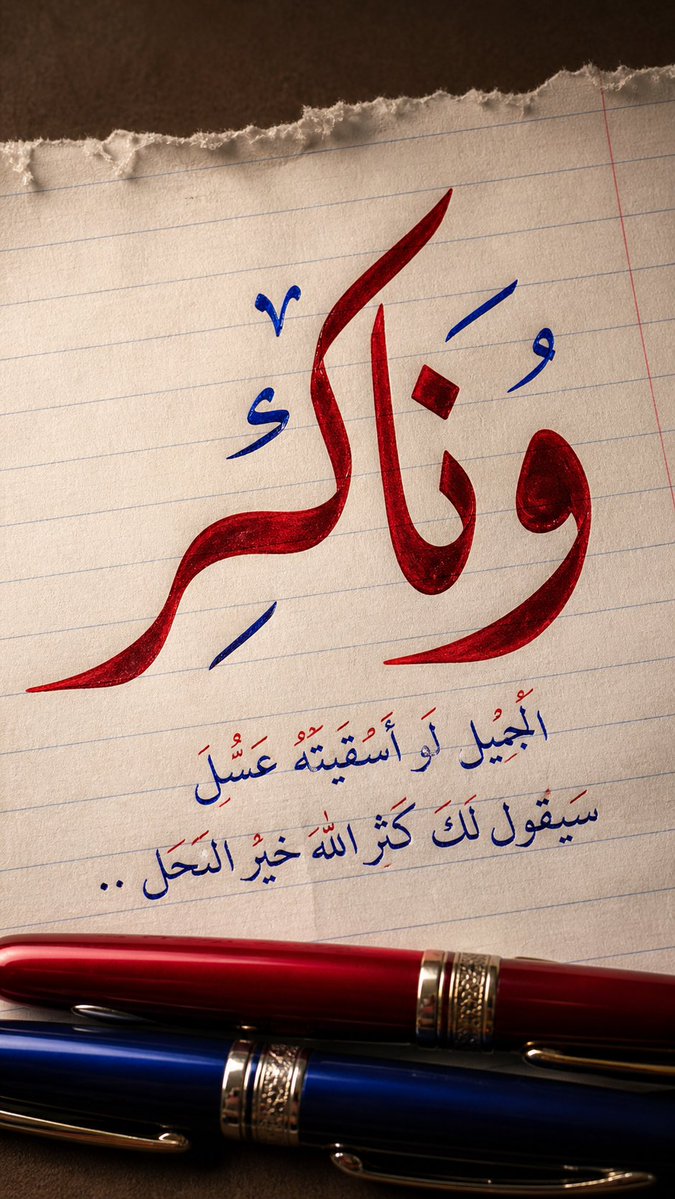 وَنُاكِر
الْجُمِيُل لَو أَسُقَيتَهُ عَسُّلِ
سَيَقُول لَكَ كَثِر اللهَ خيُر النَحَل ..